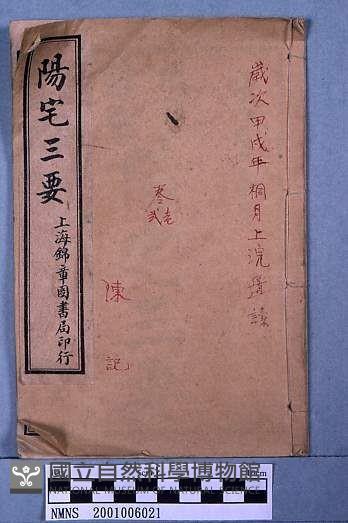 歲次甲戌年桐月上浣
卷
壹
弍
陳
記
陽宅三要
上海錦章圖書局印行
國立自然科學博物館
NATIONAL MUSEUM OF NATURAL SCIENCE
NMNS 2001006021